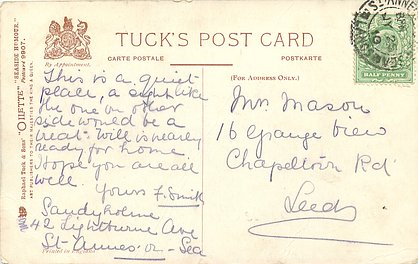 TUCK'S POST CARD
By Appointment.
CARTE POSTALE
POSTKARTE
(FOR ADDRESS ONLY.)
"OILETTE" "SEASIDE HUMOUR."
Postcard 9907.
Raphael Tuck & Sons'
ART PUBLISHERS TO THEIR MAJESTIES THE KING & QUEEN.
HALF PENNY
This is a quiet
place, a sight like
the one on other
side would be a
treat. Will is nearly
ready for home.
Hope you are all
well.
Yours F. Smith
Sandyholme
42 Lightburne Ave
St Annes-on-Sea
Printed in England
Mrs Mason
16 Grange View
Chapeltown Rd
Leeds